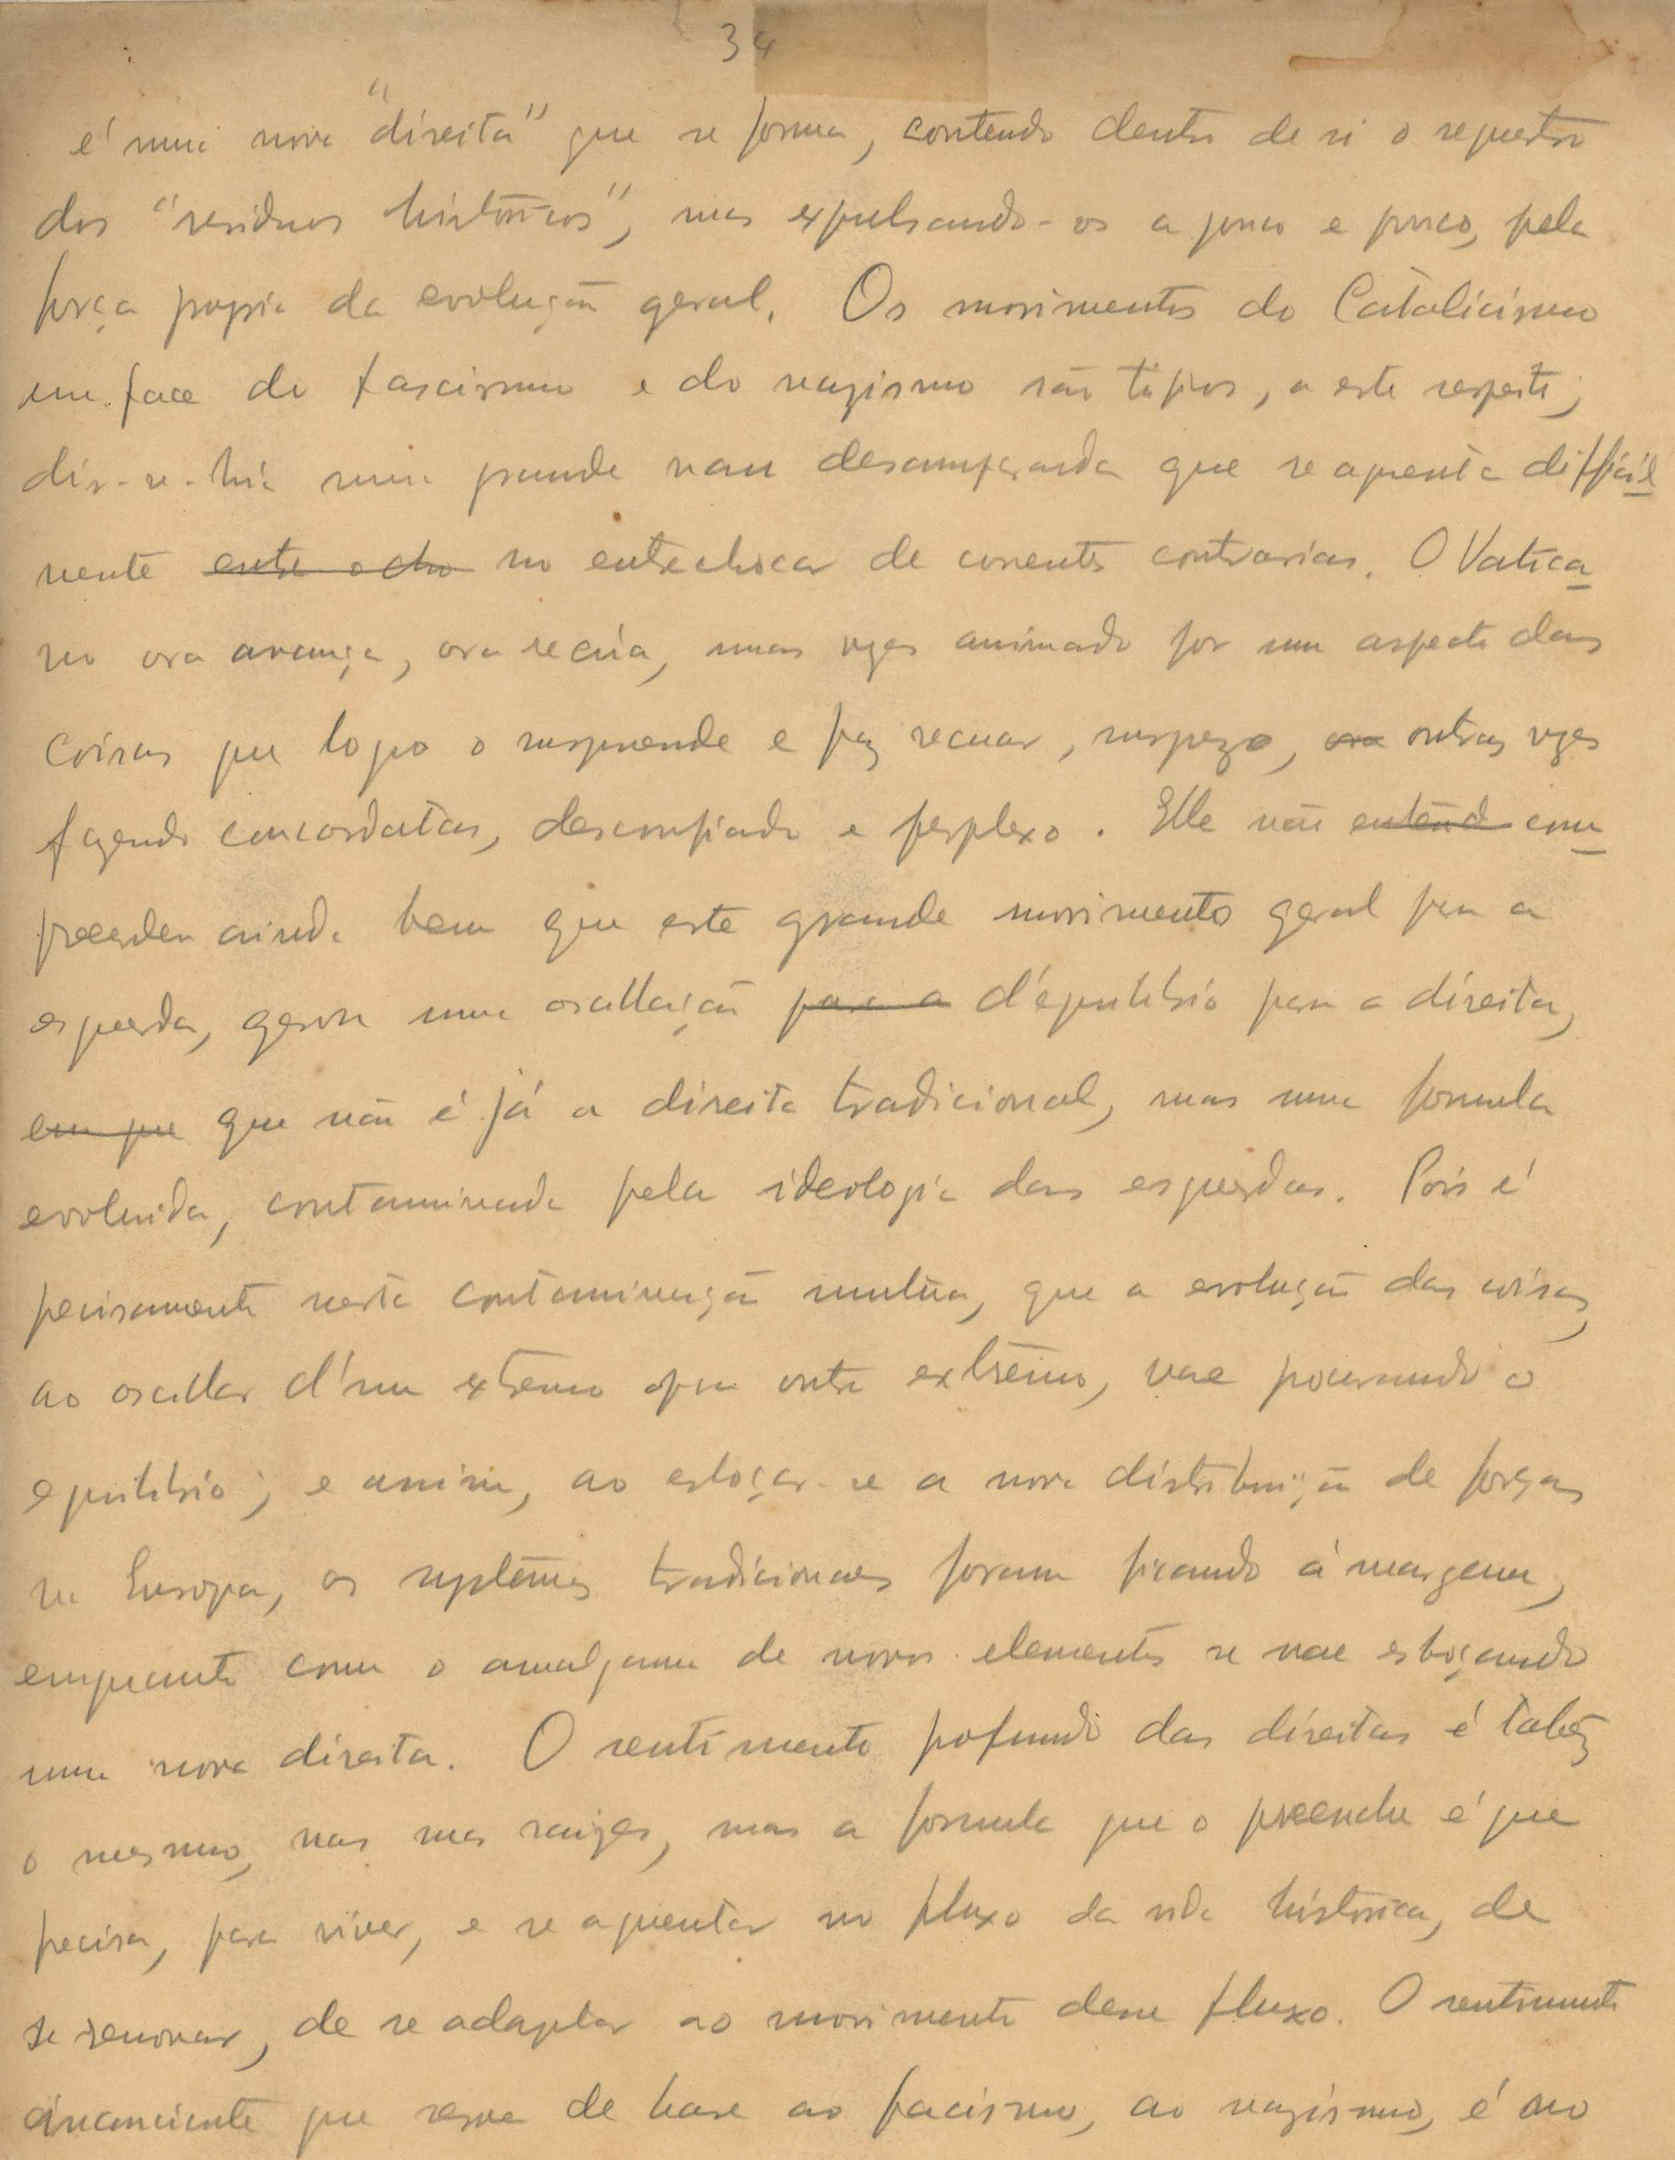 34
é uma nova "direita" que se forma, contendo dentro de si o sequestro
dos "residuos historicos", mas expulsando-os a pouco e pouco, pela
força propria da evolução geral. Os movimentos do Catolicismo
em face do fascismo e do nazismo são tipicos, a este respeito;
dir-se-hia uma grande nau desamparada que se aguenta difficil
mente entre o cho no entrechocar de correntes contrarias. O Vatica
no ora avança, ora recúa, umas vezes animado por um aspecto das
coisas que logo o surprende e faz recuar, surpezo, ora outras vezes
fazendo concordatas, desconfiado e perplexo. Elle não entend com
preendeu ainda bem que este grande movimento geral para a
esquerda, gerou uma oscillação para a d'equilibrio para a direita,
em que que não é já a direita tradicional, mas uma formula
evoluida, contaminada pela ideologia das esquerdas. Pois é
precisamente nesta contaminação mutua, que a evolução das coisas,
ao oscillar d'um extremo para outro extremo, vae procurando o
equilibrio; e assim, ao esboçar-se a nova distribuição de forças
na Europa, os systemas tradicionaes foram ficando á margem,
emquanto com o amalgama de novos elementos se vae esboçando
uma nova direita. O sentimento profundo das direitas é talvez
o mesmo, nas suas raizes, mas a formula que o preenche é que
precisa, para viver, e se aguentar no fluxo da vida historica, de
se renovar, de se adaptar ao movimento desse fluxo. O sentimento
inconciente que serve de base ao facismo, ao nazismo, é no